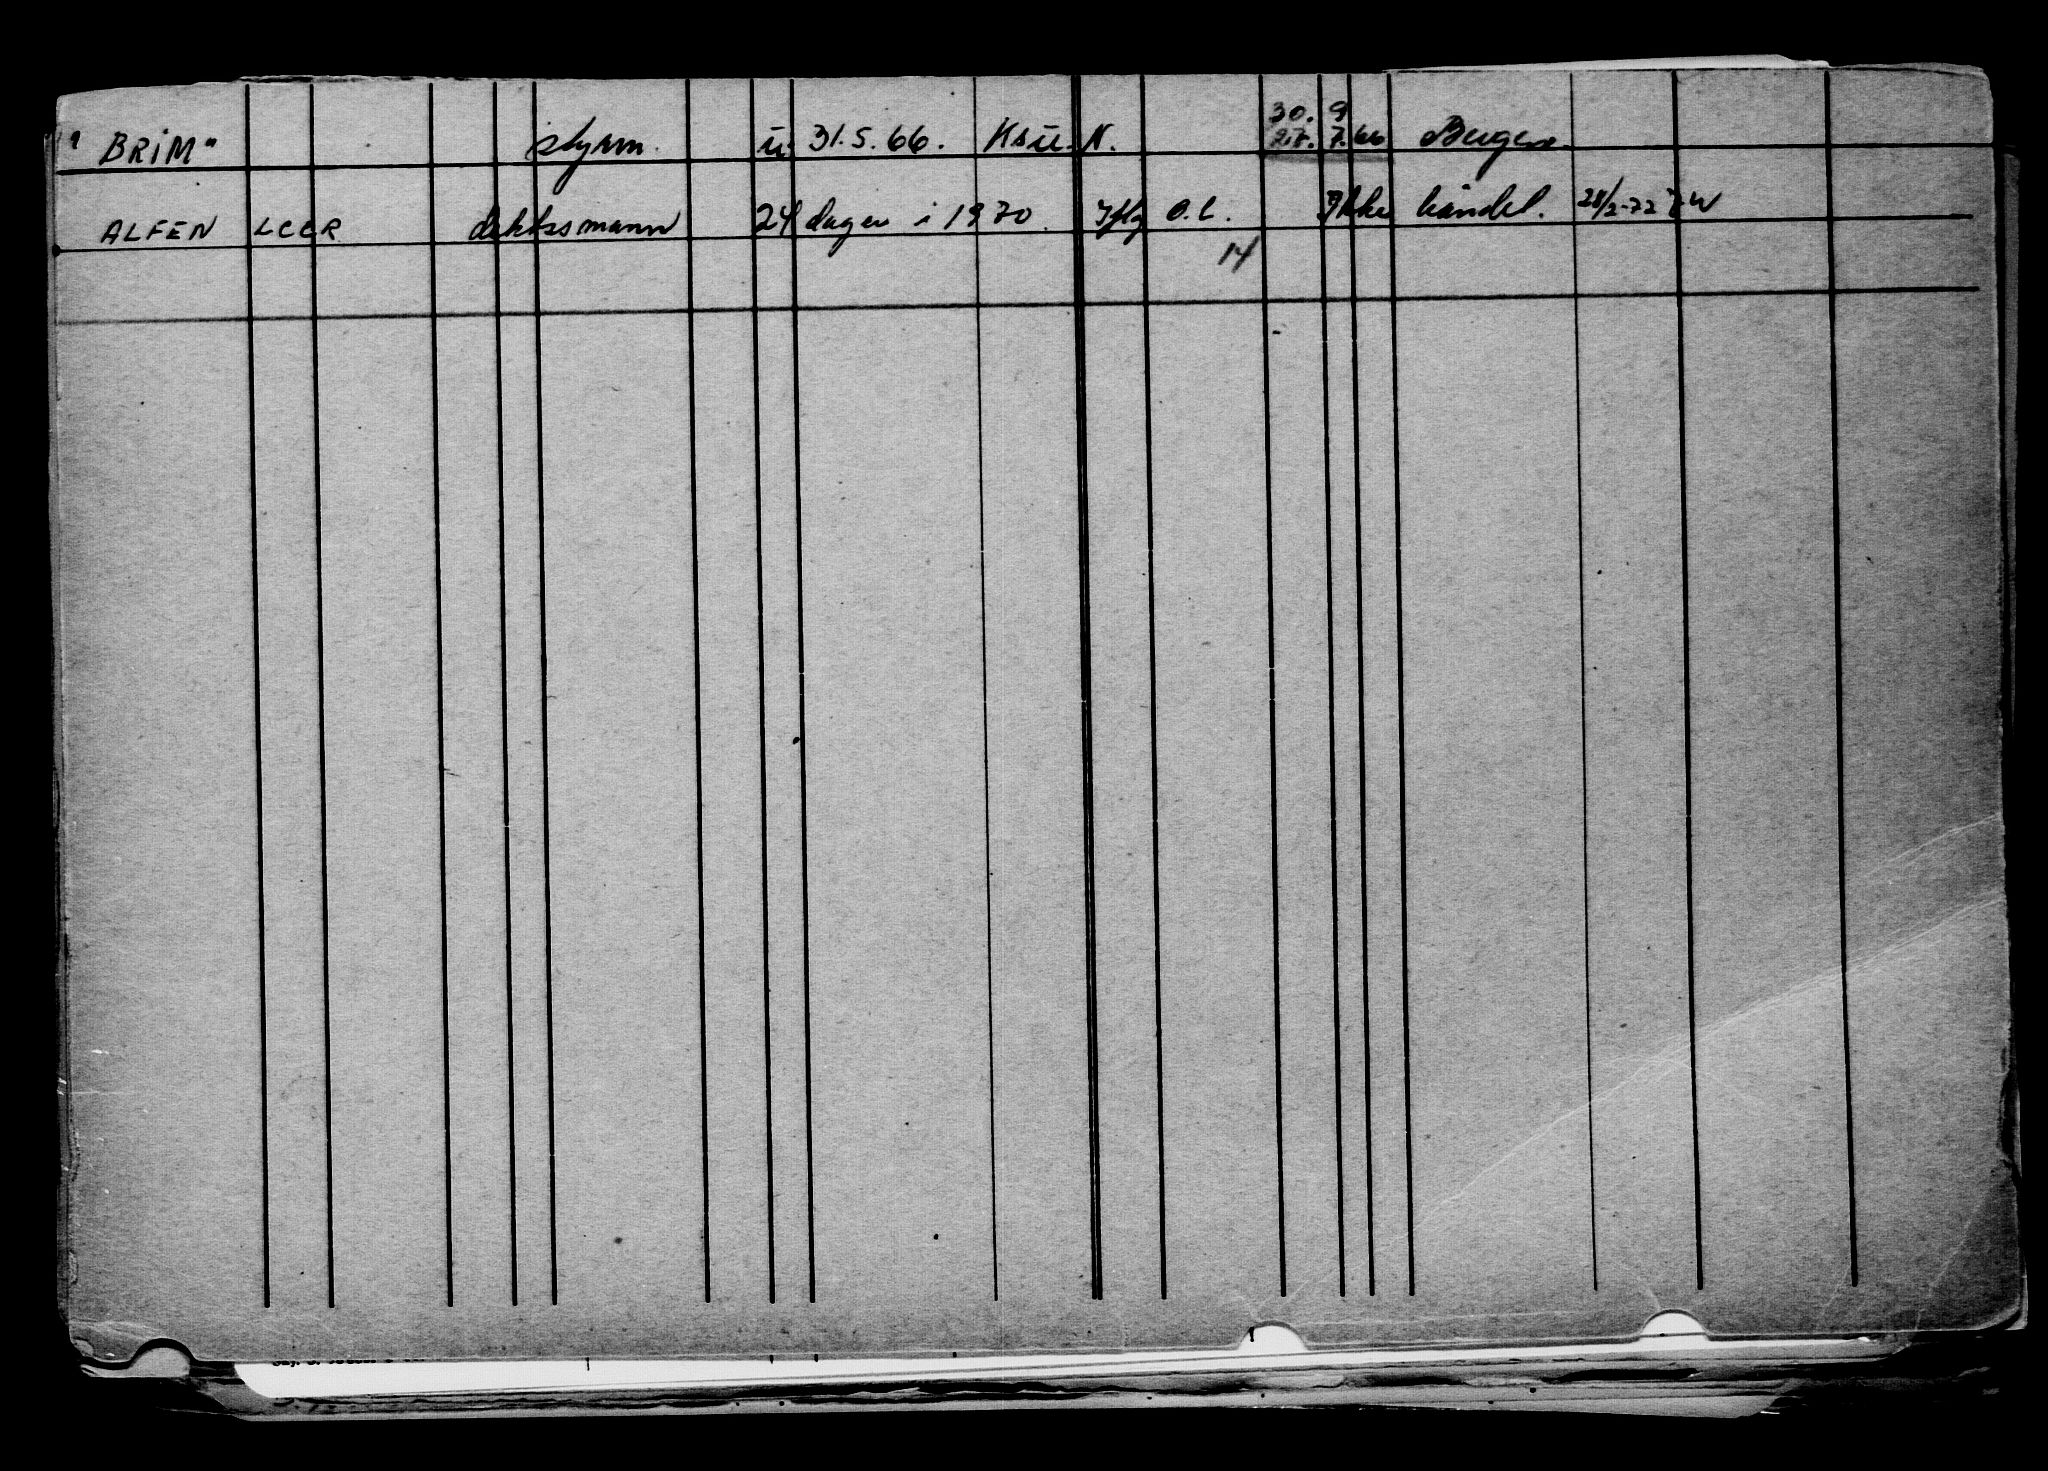 "BRIM" styrm. u. 31.5.66. Ksu. N. 30. 9 7.66 Bergen.
ALFEN LCCR dekksmann 24 dager i 1970. Iflg O.L. Ikke handel. 28/2-72
14